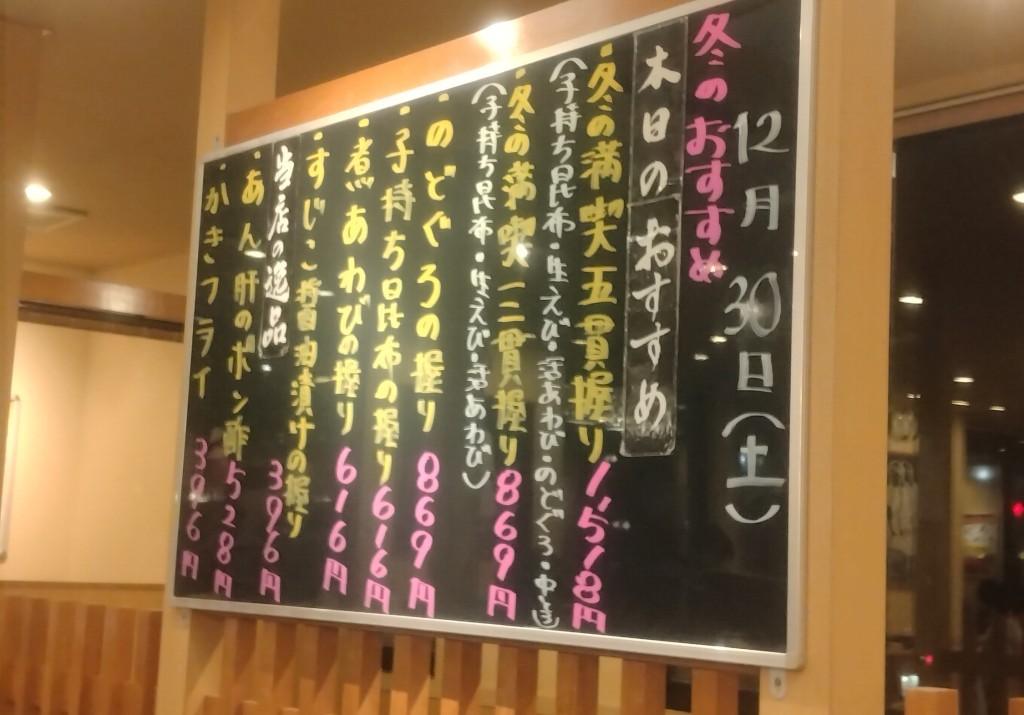 12月30日(土)
冬のおすすめ
本日のおすすめ
・冬の満喫五貫握り 1,518円
(子持ち昆布・生えび・煮あわび・のどぐろ・中とろ)
・冬の満喫三貫握り 869円
(子持ち昆布・生えび・煮あわび)
・のどぐろの握り 869円
・子持ち昆布の握り 616円
・煮あわびの握り 616円
・すじこ醤油漬けの握り 396円
当店の逸品
・あん肝のポン酢 528円
・かきフライ 396円